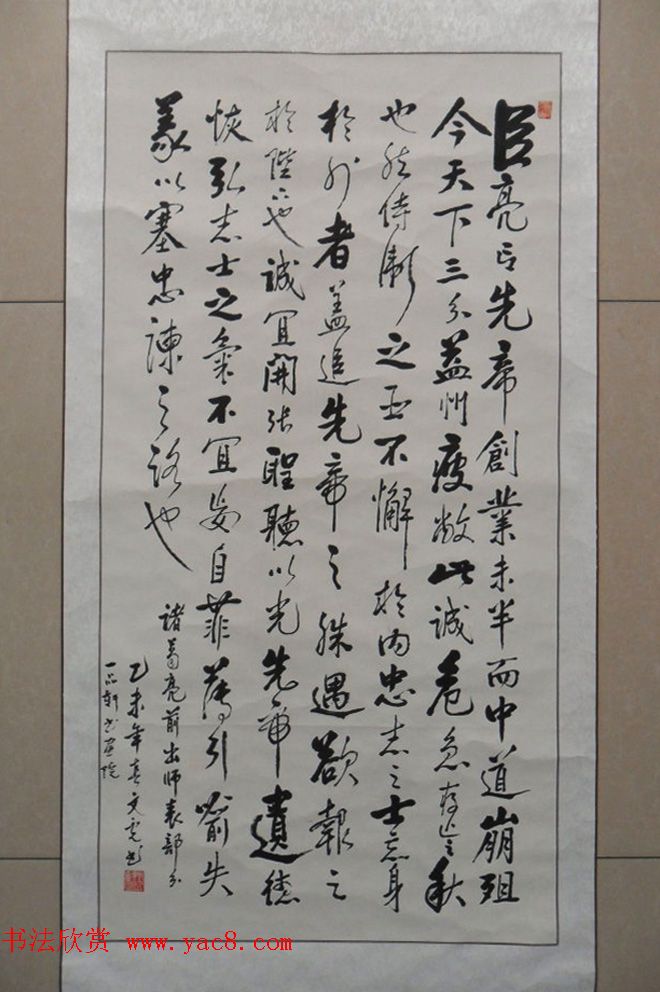 臣亮言先帝創業未半而中道崩殂
今天下三分益州疲敝此誠危急存亡之秋
也然侍衛之臣不懈於內忠志之士忘身
於外者蓋追先帝之殊遇欲報之
於陛下也誠宜開張聖聽以光先帝遺德
恢弘志士之氣不宜妄自菲薄引喻失
義以塞忠諫之路也
諸葛亮前出師表部分
乙未年春文 書
一品軒書畫院
书法欣赏 www.yac8.com